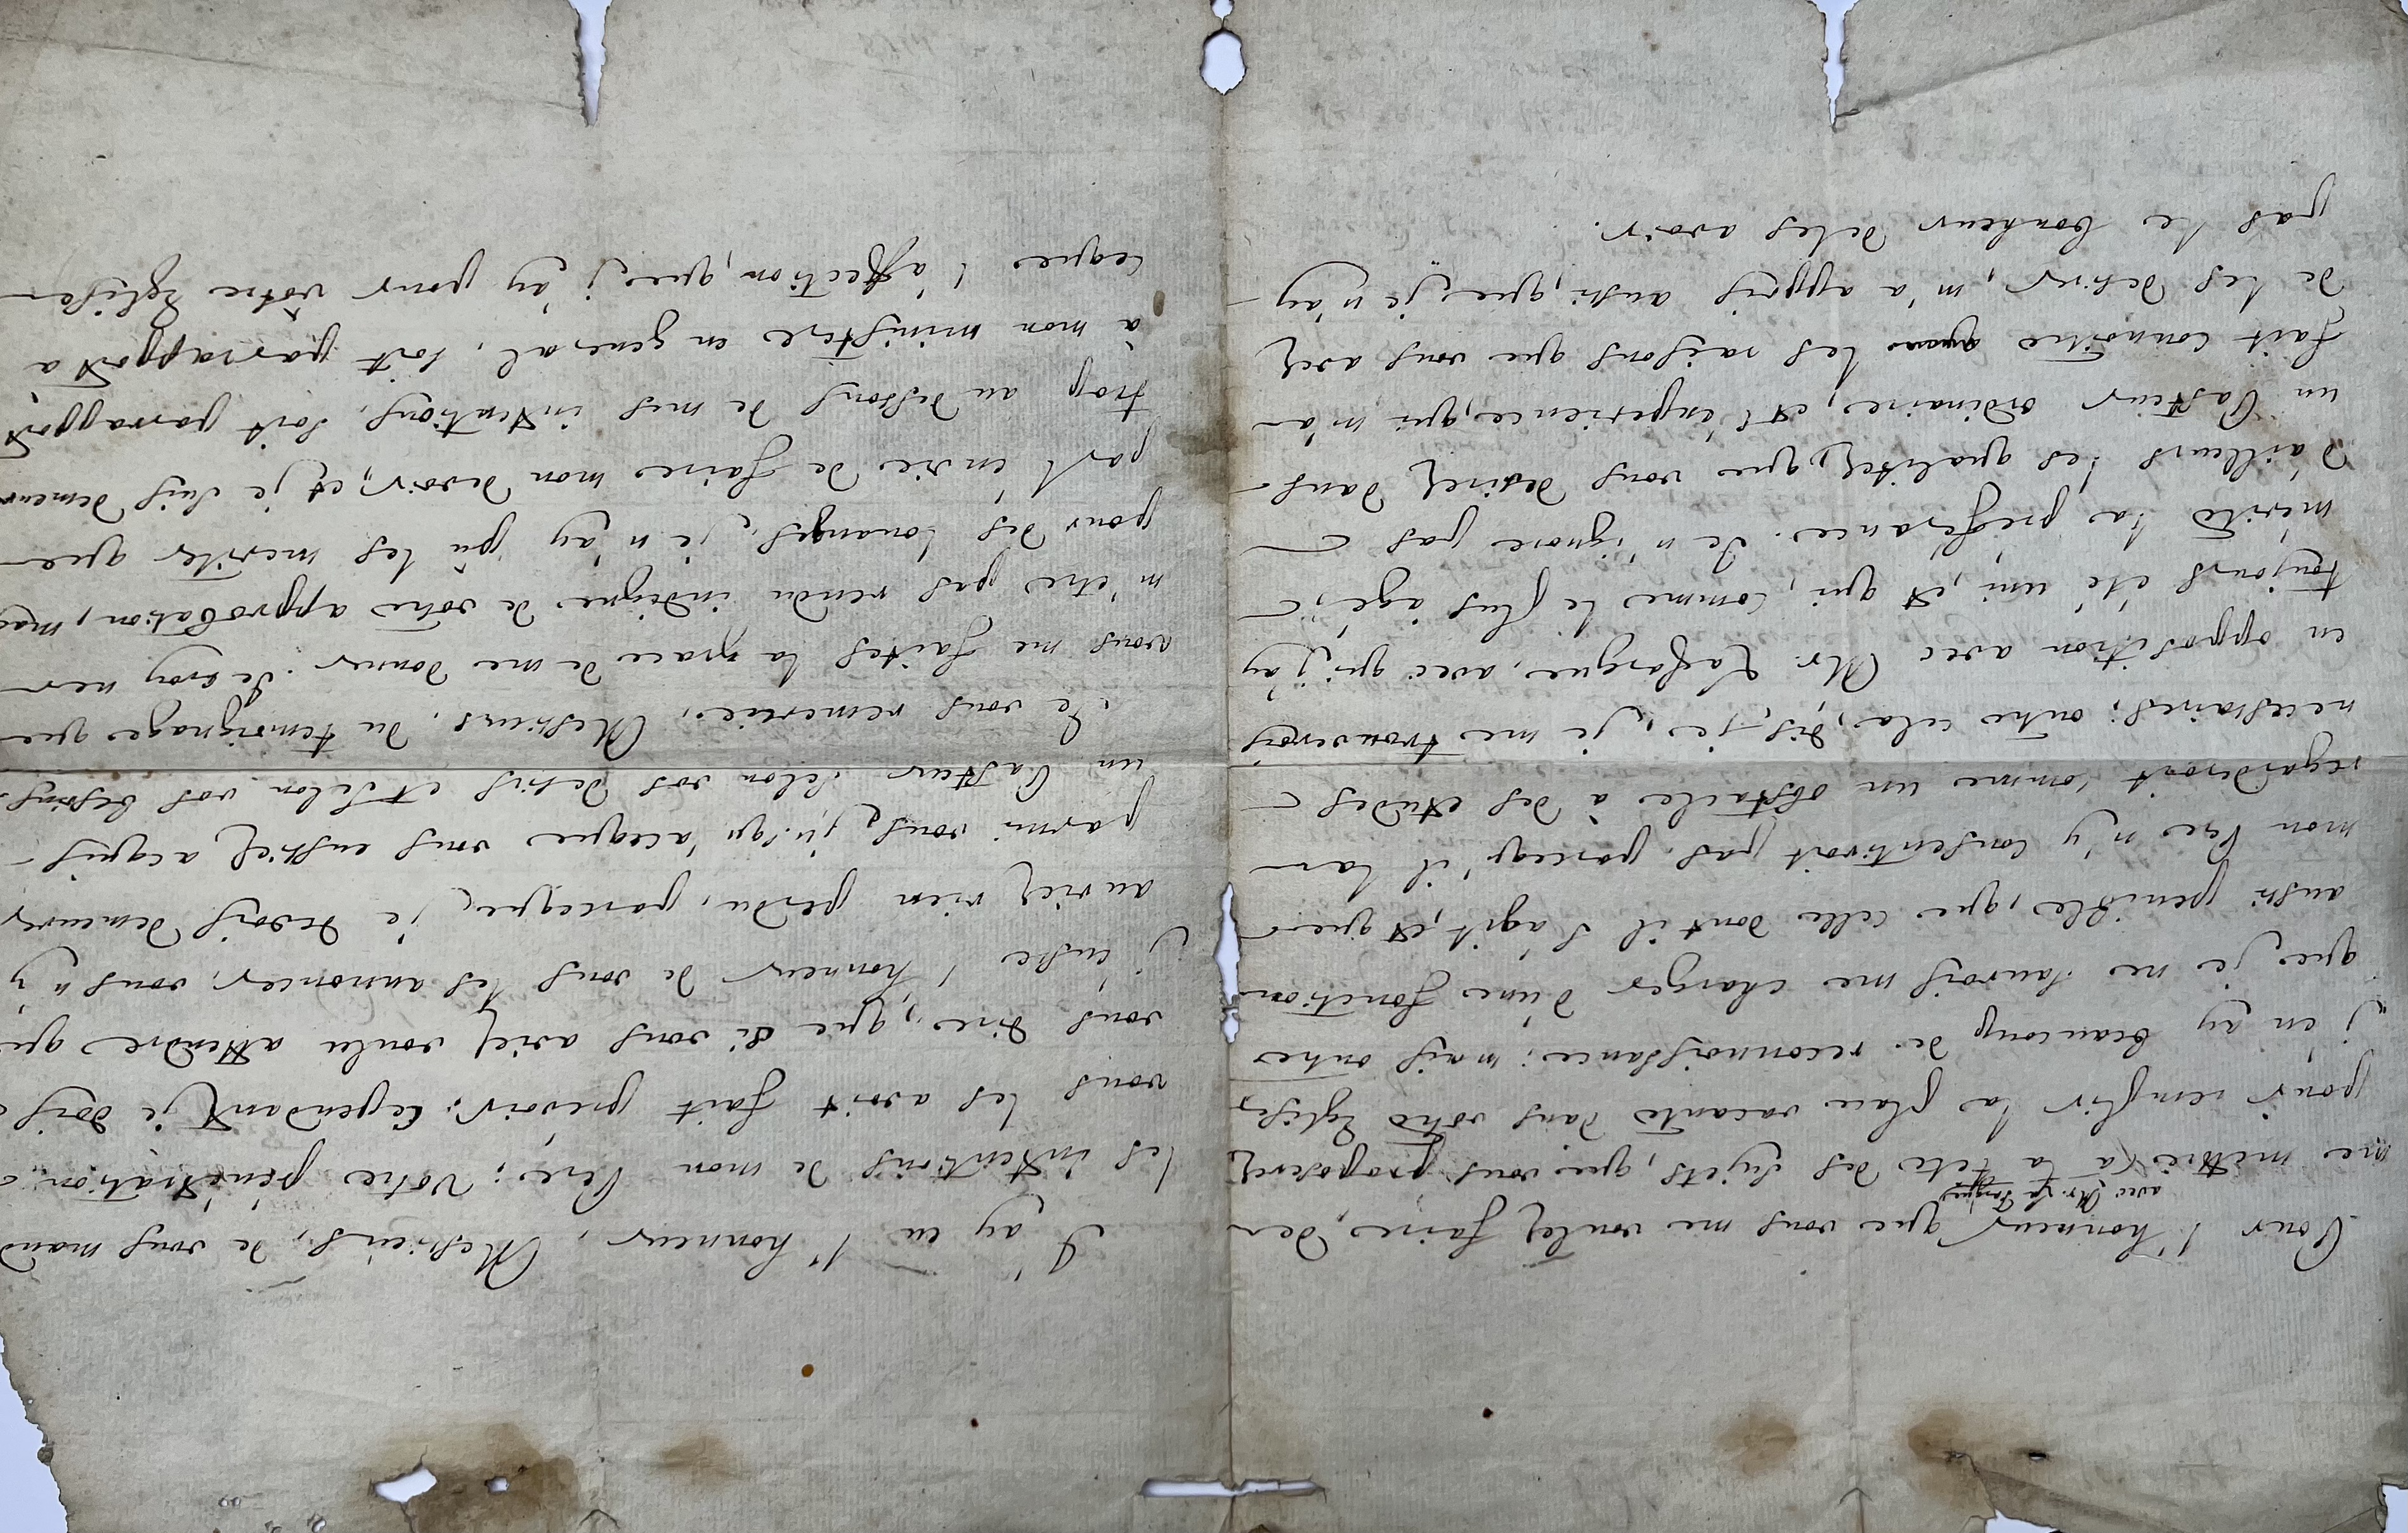 Pour l'honneur que vous me voulez faire, de
avec Mr. La Fargue
me mettre à la tete des sujets, que vous proposerez
pour remplir la place vacante dans votre Eglise,
j'en ay beaucoup de reconnoissance; mais outre
que je ne saurois me charger d'une fonction
aussi penible, que celle dont il s'agit, et que
mon Pere n'y consentiroit pas, parcequ'il la
regarderoit comme un obstacle à des etudes
necessaires; outre cela, dis-je, je me trouverois
en opposition avec Mr. Lafargue, avec qui j'ay
toujours été uni, et qui, comme le plus âgé,
mérite la preférance. Je n'ignore pas
d'ailleurs les qualitez, que vous desirez dans
un Pasteur ordinaire, et l'experience, qui m'a
fait connoitre les raisons que vous avez
de les desirer, m'a appris aussi, que je n'ay
pas le bonheur de les avoir.
J'ay eu l'honneur, Messieurs, de vous mand
les intentions de mon Pere; Votre pénétration
vous les avoit fait prevoir; Cependant je dois
vous dire, que si vous aviez voulu attendre que
j'eusse l'honneur de vous les annoncer, vous n'y
auriez rien perdu, parceque je devois demeurer
parmi vous, jusqu'aceque vous eussiez acquis
un Pasteur selon vos desirs et selon vos besoins.
Je vous remercie, Messieurs, du temoignage que
vous me faites la grace de me donner. Je croy ne
m'etre pas rendu indigne de votre approbation, mais
pour des louanges, je n'ay pû les meriter que
par l'envie de faire mon devoir, et je suis demeur
trop au dessous de mes intentions, soit parrapport
à mon ministere en general, soit parrapport à
ceque l'affection, que j'ay pour vôtre Eglise